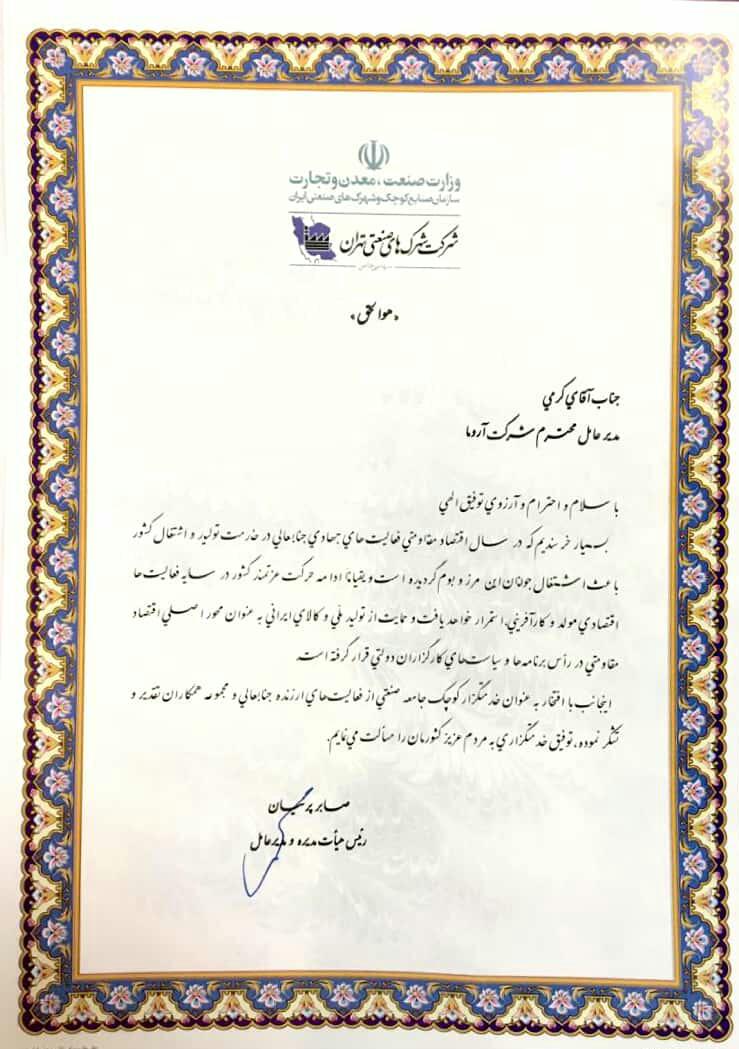 وزارت صنعت، معدن و تجارت
سازمان صنایع کوچک و شهرک های صنعتی ایران
شرکت شهرک های صنعتی تهران
سهامی خاص
« هوالحق »
جناب آقای کرمی
مدیر عامل محترم شرکت آروما
با سلام و احترام و آرزوی توفیق الهی
بسیار خرسندیم که در سال اقتصاد مقاومتی فعالیت های جهادی جنابعالی در خدمت تولید و اشتغال کشور
باعث اشتغال جوانان این مرز و بوم گردیده است و یقیاناً ادامه حرکت عزتمند کشور در سایه فعالیت ها
اقتصادی مولد و کارآفرینی، استمرار خواهد یافت و حمایت از تولید ملّی و کالای ایرانی به عنوان محور اصلی اقتصاد
مقاومتی در رأس برنامه ها و سیاست های کارگزاران دولتی قرار گرفته است.
اینجانب با افتخار به عنوان خدمتگزار کوچک جامعه صنعتی از فعالیت های ارزنده جنابعالی و مجموعه همکاران تقدیر و
تشکر نموده، توفیق خدمتگزاری به مردم عزیز کشورمان را مسألت می نمایم.
صابر پرنیان
رئیس هیأت مدیره و مدیر عامل